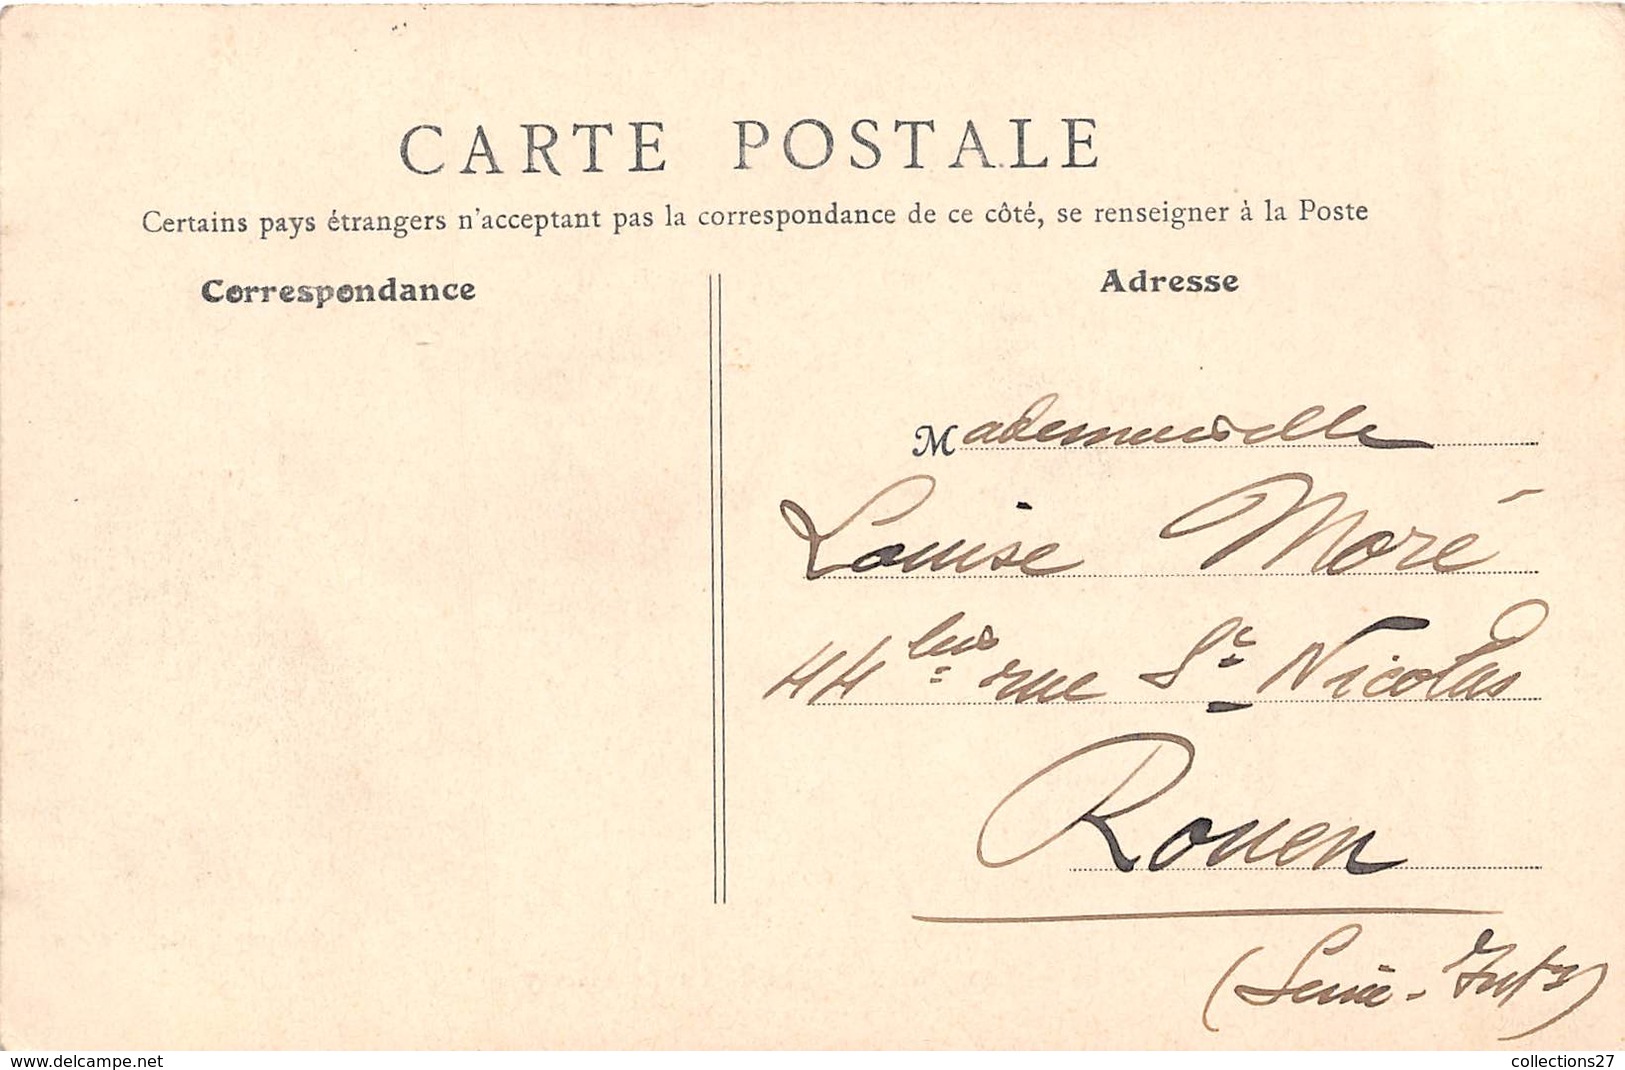 CARTE POSTALE
Certains pays étrangers n'acceptant pas la correspondance de ce côté, se renseigner à la Poste
Correspondance
Adresse
Mademoiselle
Louise Moré
44 bis rue St. Nicolas
Rouen
(Seine-Infre)
www.delcampe.net
collections27